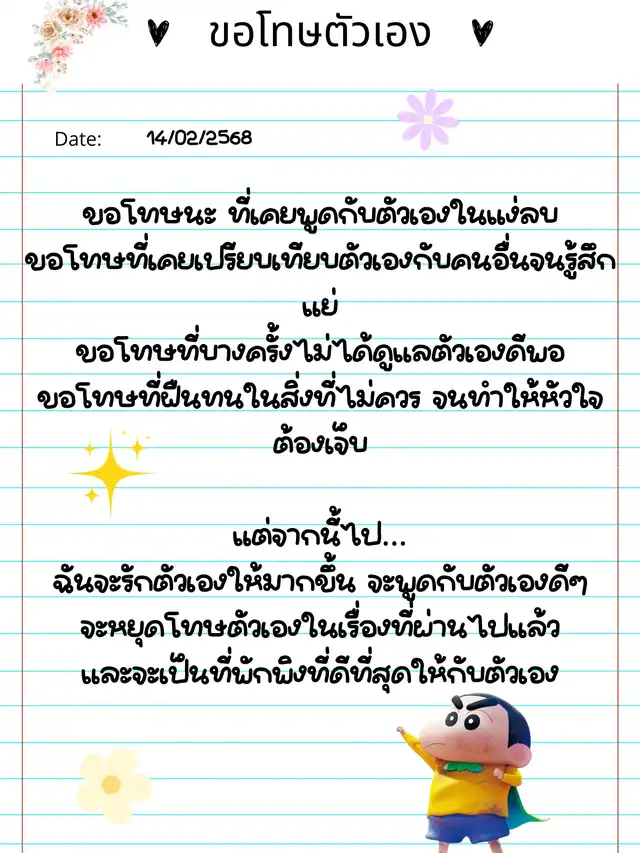 ขอโทษตัวเอง
Date: 14/02/2568
ขอโทษนะ ที่เคยพูดกับตัวเองในแง่ลบ
ขอโทษที่เคยเปรียบเทียบตัวเองกับคนอื่นจนรู้สึก
แย่
ขอโทษที่บางครั้งไม่ได้ดูแลตัวเองดีพอ
ขอโทษที่ฝืนทนในสิ่งที่ไม่ควร จนทำให้หัวใจ
ต้องเจ็บ
แต่จากนี้ไป...
ฉันจะรักตัวเองให้มากขึ้น จะพูดกับตัวเองดีๆ
จะหยุดโทษตัวเองในเรื่องที่ผ่านไปแล้ว
และจะเป็นที่พักพิงที่ดีที่สุดให้กับตัวเอง